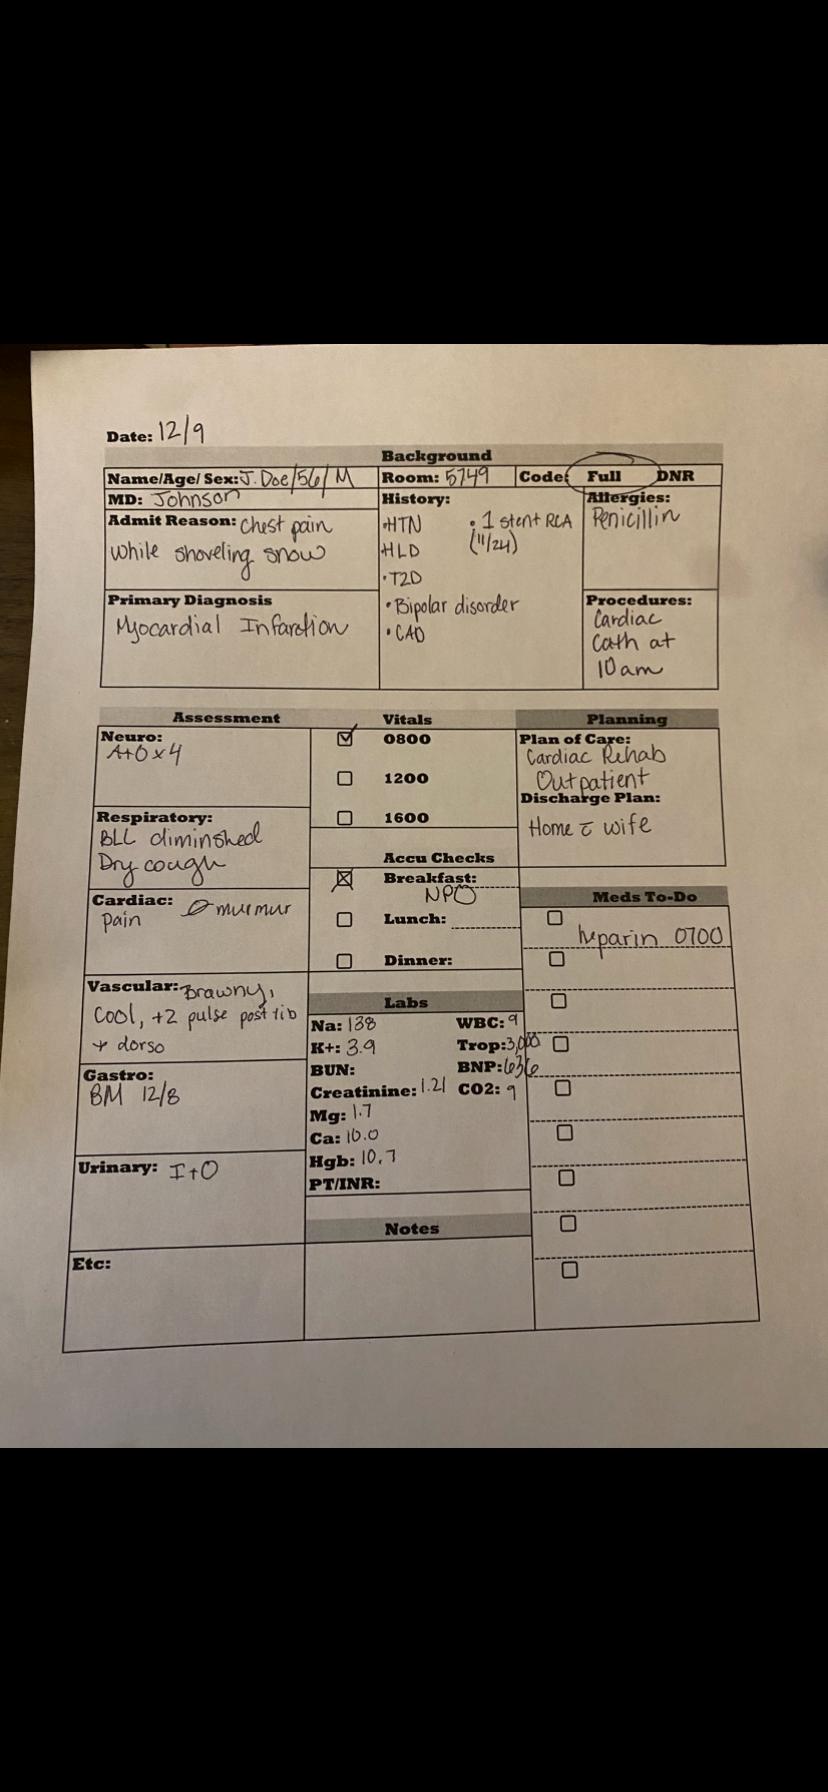 Date: 12/9
Background
Name/Age/ Sex: J. Doe/56/M
Room: 5749
Code: Full DNR
MD: Johnson
Admit Reason: Chest pain
while shoveling snow
Primary Diagnosis
Myocardial Infarction
History:
•HTN
•HLD
•T2D
•Bipolar disorder
•CAD
•1 stent RCA
(11/24)
Allergies:
Penicillin
Procedures:
Cardiac
Cath at
10am
Assessment
Neuro:
A+O x 4
Respiratory:
BLL diminshed
Dry cough
Cardiac: Ø murmur
pain
Vascular: Brawny,
Cool, +2 pulse post tib
+ dorso
Gastro:
BM 12/8
Urinary: I+O
Etc:
Vitals
0800
1200
1600
Accu Checks
Breakfast:
NPO
Lunch:
Dinner:
Labs
Na: 138
K+: 3.9
BUN:
Creatinine: 1.21
Mg: 1.7
Ca: 10.0
Hgb: 10.7
PT/INR:
WBC: 9
Trop: 3,000
BNP: 636
CO2: 9
Notes
Planning
Plan of Care:
Cardiac Rehab
Outpatient
Discharge Plan:
Home c̄ wife
Meds To-Do
heparin 0700